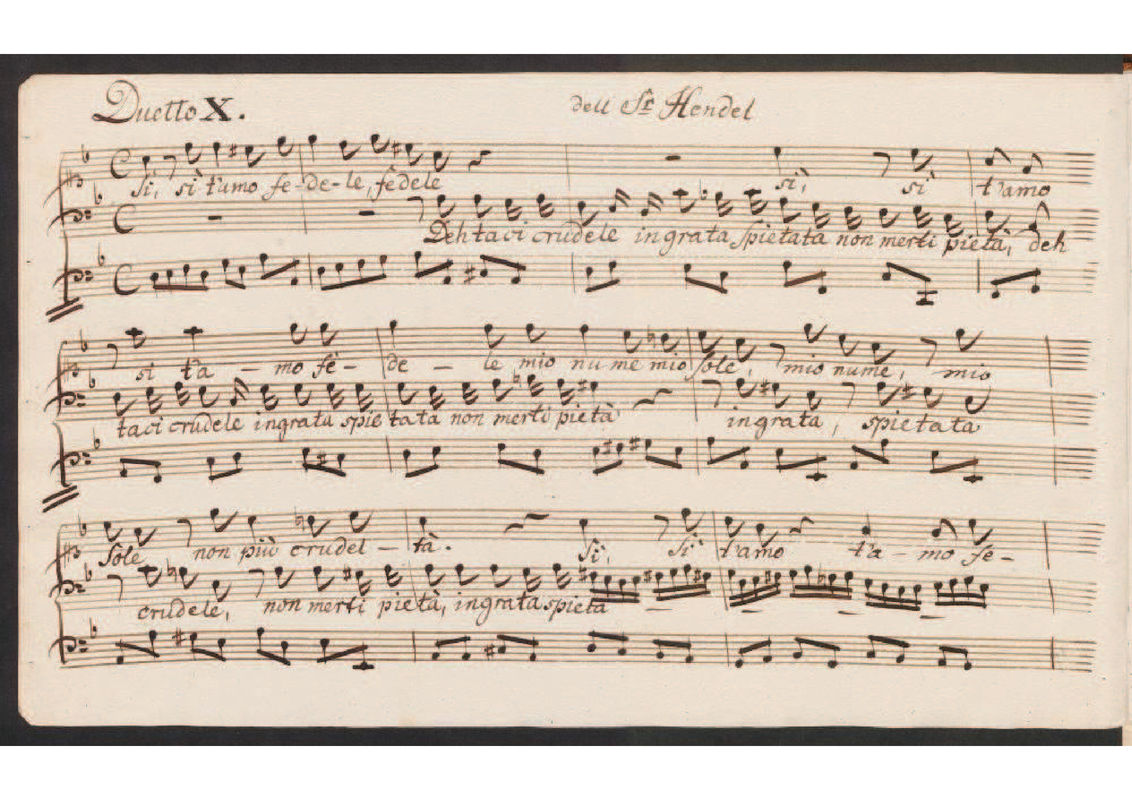 Duetto X.
dell Sr. Hendel
Si, si t'amo fe-de-le, fedele si, si t'amo
Deh taci crudele ingrata spietata non merti pietà, deh
si t'a - mo fe - de - le mio nume mio sole, mio nume, mio
taci crudele ingrata spietata non merti pietà ingrata, spietata
sole non più crudel - tà. Si, Si t'amo t'a - mo fe -
crudele, non merti pietà, ingrata spieta